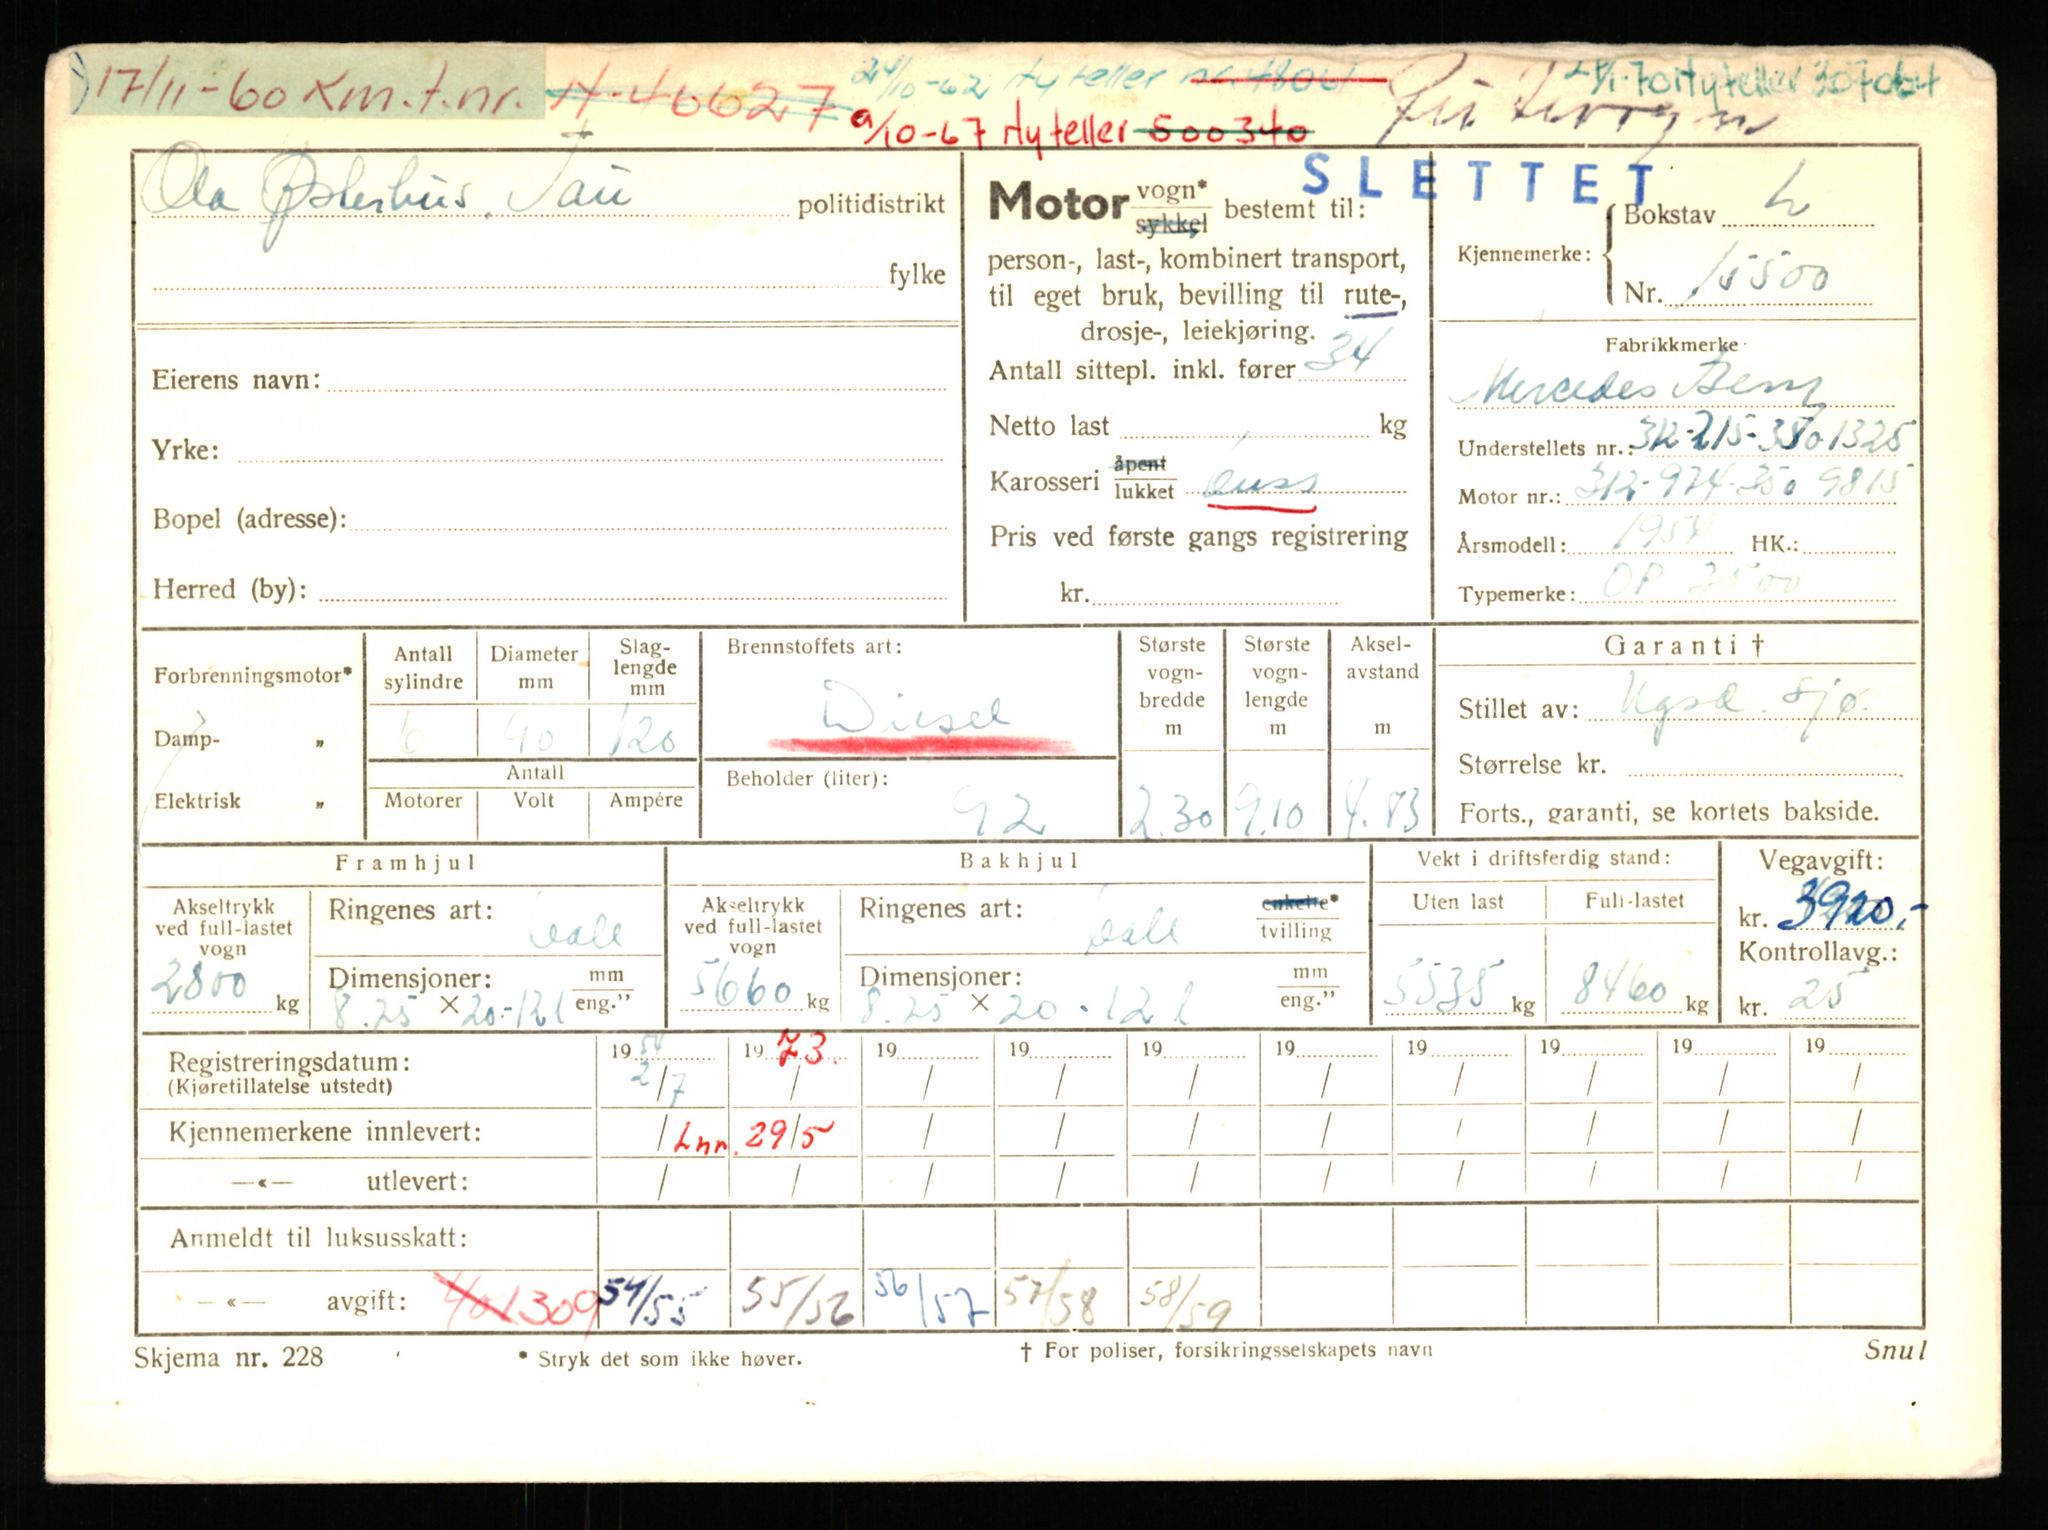 17/11-60 Km.t.nr. H-40627 24/10-62 Ny teller nr. 4806 28/1-70 Ny teller 307064
9/10-67 Ny teller 500340
SLETTET
Ola Østerhus, Tau politidistrikt
fylke
Eierens navn:
Yrke:
Bopel (adresse):
Herred (by):
Motor vogn* sykkel bestemt til:
person-, last-, kombinert transport,
til eget bruk, bevilling til rute-,
drosje-, leiekjøring.
Antall sittepl. inkl. fører 34
Netto last kg
Karosseri åpent lukket buss
Pris ved første gangs registrering
kr.
Kjennemerke: Bokstav L
Nr. 15500
Fabrikkmerke
Mercedes Benz
Understellets nr.: 312-215-3501325
Motor nr.: 312-974-350 9815
Årsmodell: 1954 HK.:
Typemerke: OP 3500
Forbrenningsmotor*
Damp- „
Elektrisk „
Antall sylindre 6
Diameter mm 90
Slaglengde mm 120
Antall
Motorer Volt Ampére
Brennstoffets art:
Diesel
Beholder (liter): 92
Største vognbredde m 2.30
Største vognlengde m 9.10
Akselavstand m 4.83
Garanti †
Stillet av: Ugsd. Sjø.
Størrelse kr.
Forts., garanti, se kortets bakside.
Framhjul
Akseltrykk ved full-lastet vogn 2800 kg
Ringenes art:
Dimensjoner: mm eng.”
8.25 × 20.-12 l
Bakhjul
Akseltrykk ved full-lastet vogn 5660 kg
Ringenes art: enkelte* tvilling
Dimensjoner: mm eng.”
8.25 × 20 - 12 l
Vekt i driftsferdig stand:
Uten last 5535 kg
Full-lastet 8460 kg
Vegavgift:
kr. 3920,-
Kontrollavg.:
kr. 25
Registreringsdatum: 1954 1973. 19 19 19 19 19 19 19 19
(Kjøretillatelse utstedt) 2/7 / / / / / / / / /
Kjennemerkene innlevert: / Lnn. 29/5 / / / / / / / /
—«— utlevert: / / / / / / / / / /
Anmeldt til luksusskatt:
—«— avgift: 401309 54/55 55/56 56/57 57/58 58/59
Skjema nr. 228 * Stryk det som ikke høver. † For poliser, forsikringsselskapets navn Snul